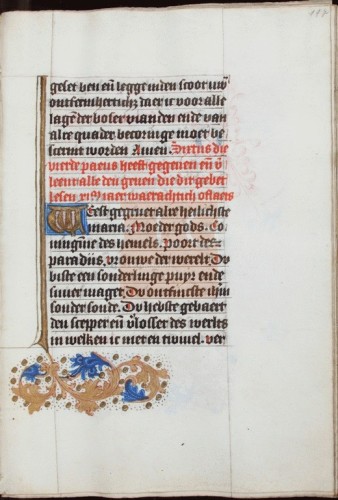 117
geset ben en̄ legge inden scoot uwer
ontfermherticheit daer ic voor alle
lagē der boser vianden ende van
alre quader becoringe moet be
scermt worden Amen. Sixtus die
vierde paeus heeft gegeuen en̄ v̄
leent alle den genen die dit gebet
lesen xi M iaer waerachtich oflaets
Weest gegruet alre heilichste
maria. Moeder gods. Co
ninginne des hemels. Poort des
paradijs. vrouwe der werelt. Du
biste een sonderlinge puyr ende
suuer maget. Du ontfinc̄ste ihm̄
sonder sonde. Du hebste gebaert
den scepper en̄ v̄losser des werelts
in welken ic niet en twiuel. ver